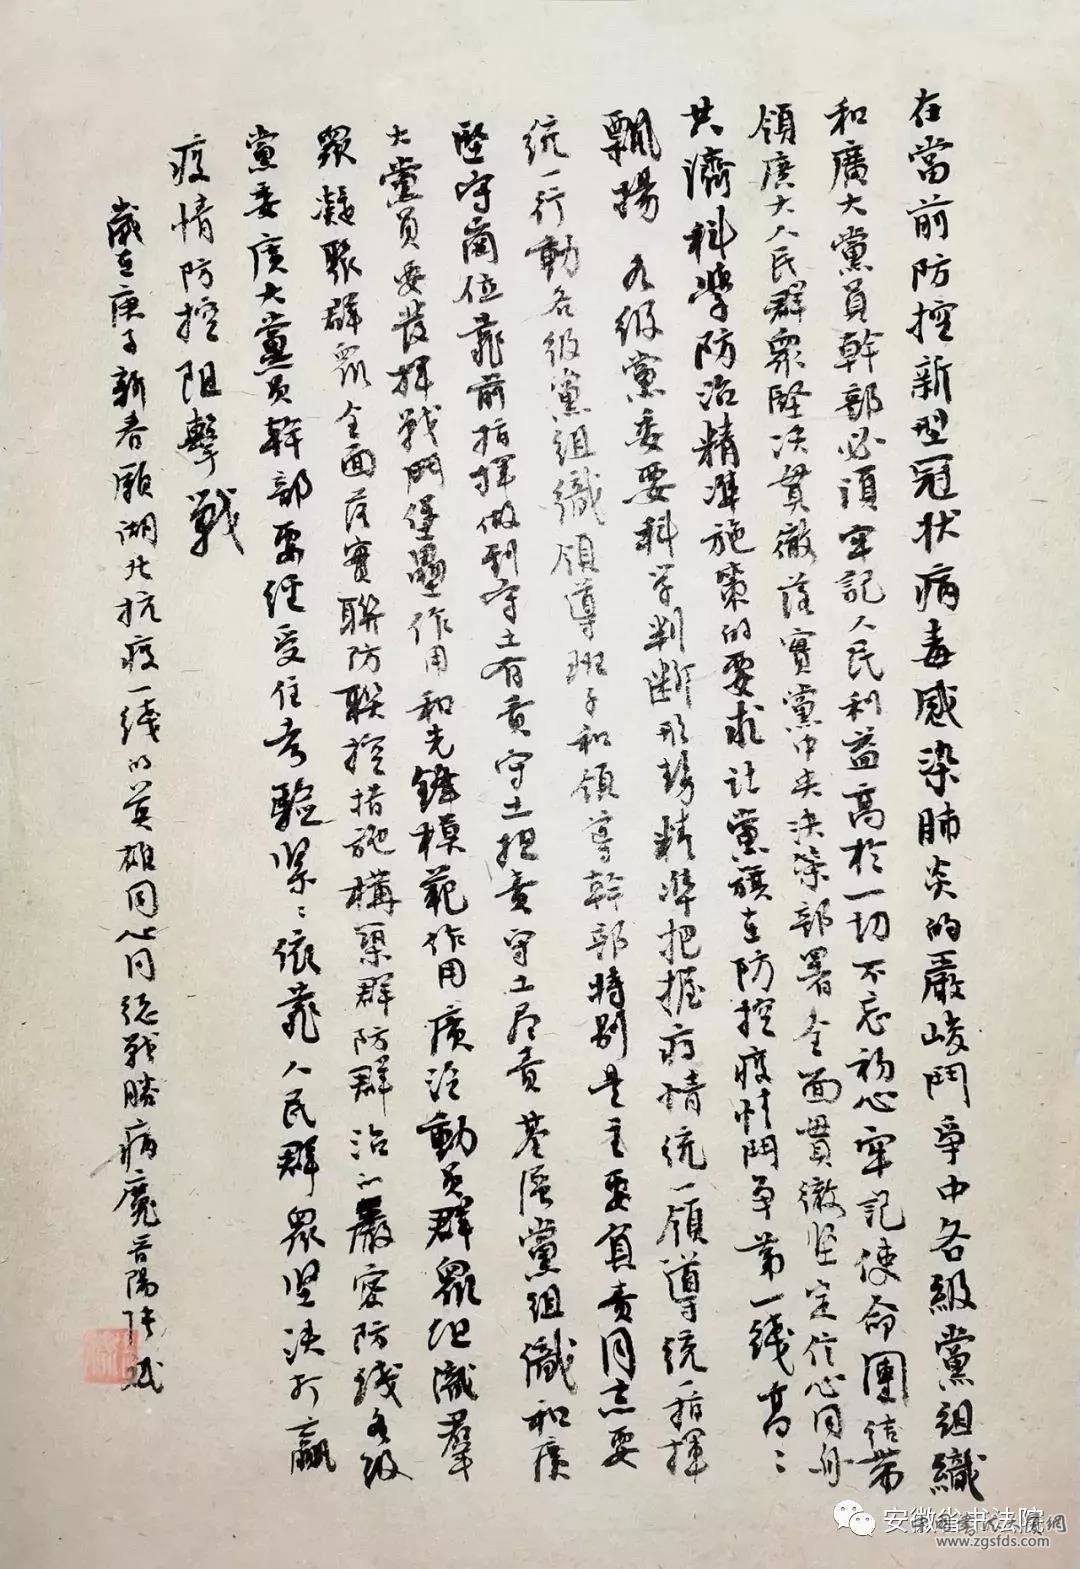 在當前防控新型冠狀病毒感染肺炎的嚴峻鬥爭中各級黨組織
和廣大黨員幹部必須牢記人民利益高於一切不忘初心牢記使命團结带
領廣大人民群衆堅决貫徹落實黨中央决策部署全面貫徹坚定信心同舟
共濟科學防治精準施策的要求讓黨旗在防控疫情鬥争第一线高〻
飄揚各级黨委要科学判斷形勢精準把握疫情统一領導统一指揮
统一行動各级黨組織領導班子和領導幹部時别是主要負责同志要
堅守崗位靠前指揮做到守土有责守土担责守土尽责基层黨組織和廣
大黨員要發揮戰鬥堡壘作用和先鋒模範作用廣泛動員群衆组織羣
衆凝聚群眾全面落實聯防聯控措施構築群防群治的嚴密防线各级
黨委廣大黨員幹部要经受住考驗紧〻依靠人民群眾坚决打赢
疫情防控阻擊戰
歲在庚子新春願湖北抗疫一线的英雄同心同德戰勝病魔
安徽省书法院
www.zgsfds.com